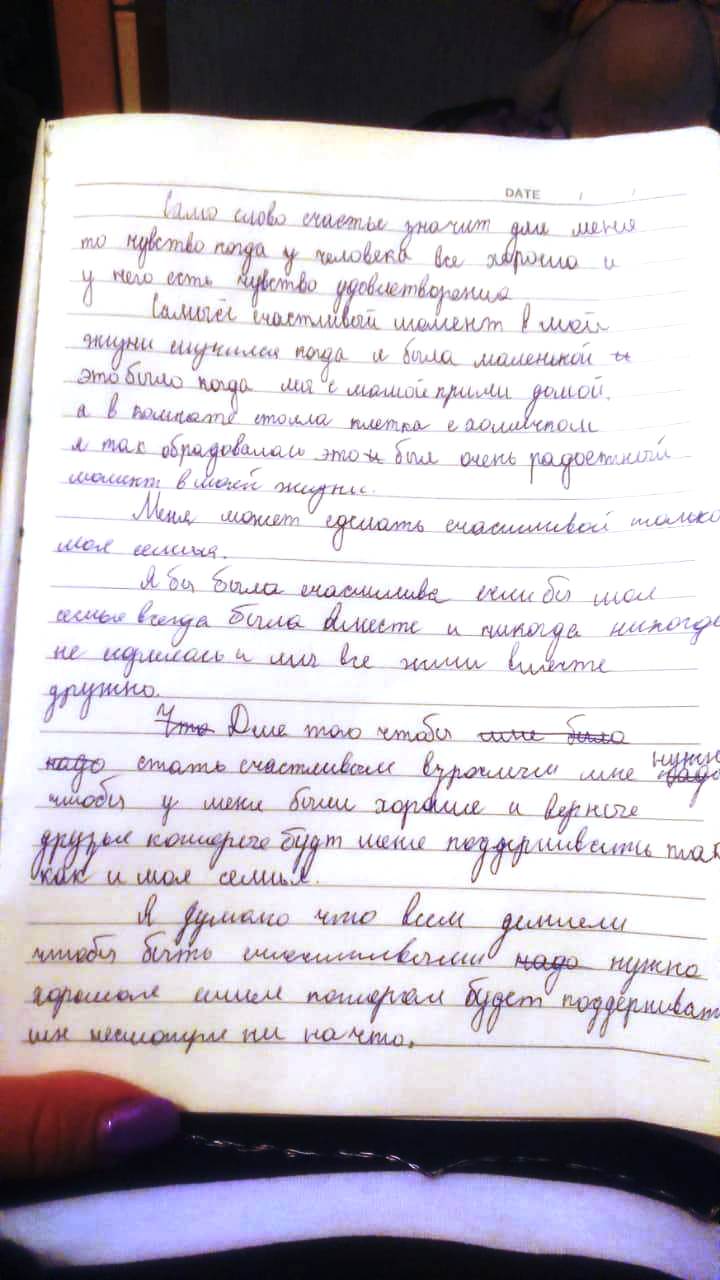 DATE / /
Само слово счастье значит для меня
то чувство когда у человека все хорошо и
у него есть чувство удовлетворения
Самый счастливый момент в моей
жизни случился когда я была маленькой и
это было когда мы с мамой пришли домой.
а в комнате стояла клетка с хомячком
я так обрадовалась это и был очень радостный
момент в моей жизни.
Меня может сделать счастливой только
моя семья.
Я бы была счастлива если бы моя
семья всегда была вместе и никогда никогда
не и мы все жили вместе
дружно.
Что Для того чтобы мне было
надо стать счастливым взрослым мне надо нужно
чтобы у меня были хорошие и верные
друзья которые будт меня поддерживать так
как и моя семья.
Я думаю что всем детям
чтобы быть счастливыми надо нужна
хорошая семья которая будет поддерживать
их несмотря ни на что.